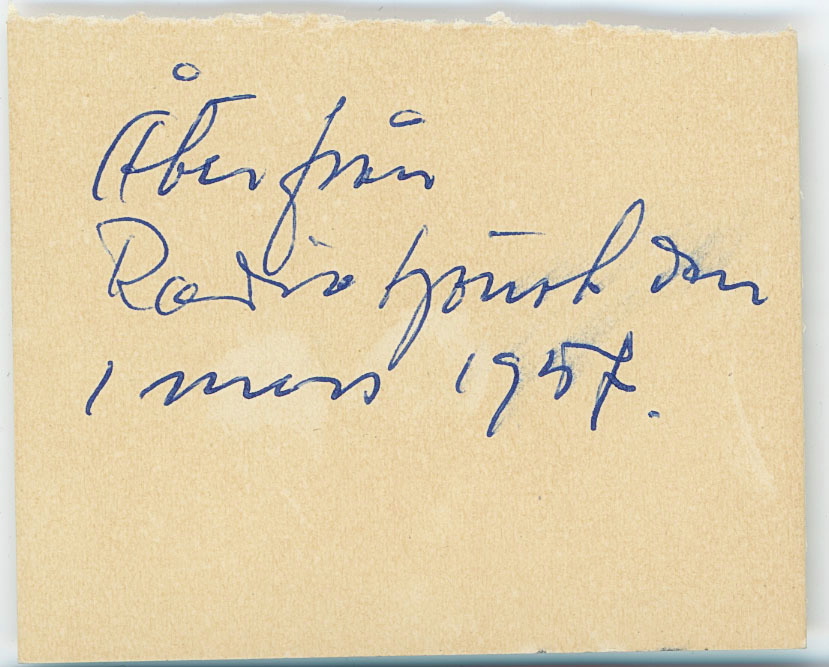 Åter från
Radiotjänst den
1 mars 1957.